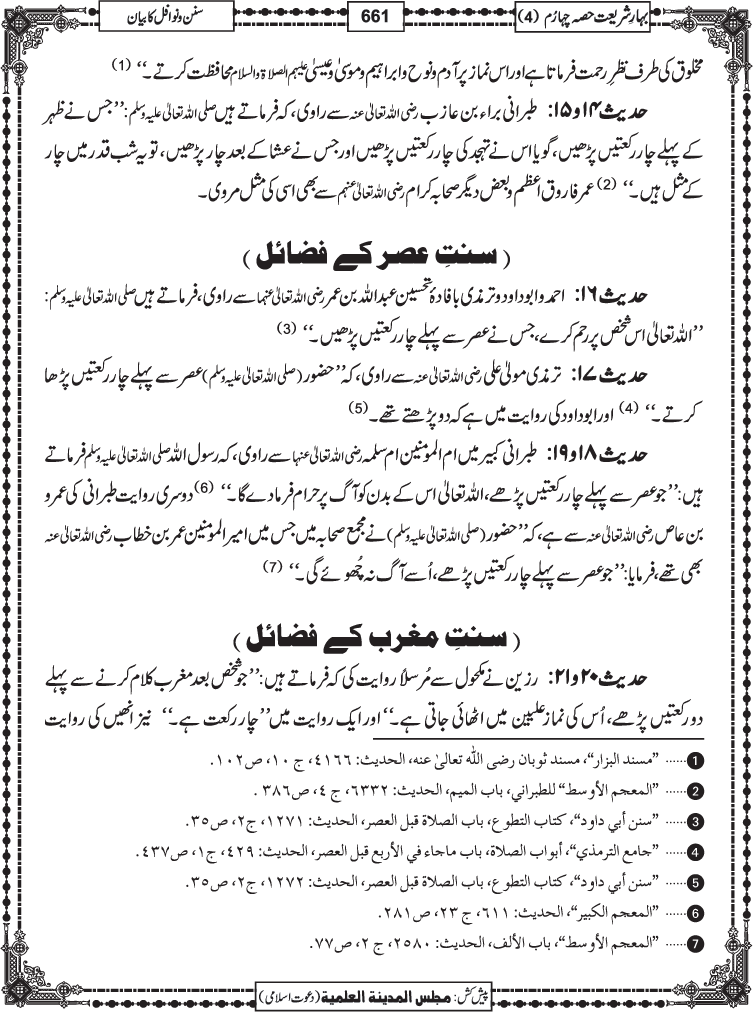 بہارِشریعت حصہ چہارم (4)
661
سنن و نوافل کا بیان
مخلوق کی طرف نظرِ رحمت فرماتا ہے اور اس نماز پر آدم و نوح و ابراہیم و موسیٰ و عیسیٰ علیہم الصلاۃ والسلام محافظت کرتے۔‘‘ (1)
حدیث ۱۴ و ۱۵: طبرانی براء بن عازب رضی اللہ تعالیٰ عنہ سے راوی، کہ فرماتے ہیں صلی اللہ تعالیٰ علیہ وسلم: ’’جس نے ظہر
کے پہلے چار رکعتیں پڑھیں، گویا اس نے تہجد کی چار رکعتیں پڑھیں اور جس نے عشا کے بعد چار پڑھیں، تو یہ شب قدر میں چار
کے مثل ہیں۔‘‘ (2) عمر فاروق اعظم و بعض دیگر صحابہ کرام رضی اللہ تعالیٰ عنہم سے بھی اسی کی مثل مروی۔
(سنتِ عصر کے فضائل)
حدیث ۱۶: احمد و ابو داود و ترمذی بافادۂ تحسین عبداللہ بن عمر رضی اللہ تعالیٰ عنہا سے راوی، فرماتے ہیں صلی اللہ تعالیٰ علیہ وسلم:
’’اللہ تعالیٰ اس شخص پر رحم کرے، جس نے عصر سے پہلے چار رکعتیں پڑھیں۔‘‘ (3)
حدیث ۱۷: ترمذی مولیٰ علی رضی اللہ تعالیٰ عنہ سے راوی، کہ ’’حضور (صلی اللہ تعالیٰ علیہ وسلم) عصر سے پہلے چار رکعتیں پڑھا
کرتے۔‘‘ (4) اور ابو داود کی روایت میں ہے کہ دو پڑھتے تھے۔ (5)
حدیث ۱۸ و ۱۹: طبرانی کبیر میں ام المومنین ام سلمہ رضی اللہ تعالیٰ عنہا سے راوی، کہ رسول اللہ صلی اللہ تعالیٰ علیہ وسلم فرماتے
ہیں: ’’جو عصر سے پہلے چار رکعتیں پڑھے، اللہ تعالیٰ اس کے بدن کو آگ پر حرام فرما دے گا۔‘‘ (6) دوسری روایت طبرانی کی عمرو
بن عاص رضی اللہ تعالیٰ عنہ سے ہے، کہ ’’حضور (صلی اللہ تعالیٰ علیہ وسلم) نے مجمع صحابہ میں جس میں امیر المومنین عمر بن خطاب رضی اللہ تعالیٰ عنہ
بھی تھے، فرمایا: ’’جو عصر سے پہلے چار رکعتیں پڑھے، اُسے آگ نہ چُھوئے گی۔‘‘ (7)
(سنتِ مغرب کے فضائل)
حدیث ۲۰ و ۲۱: رزین نے مکحول سے مُرسلاً روایت کی کہ فرماتے ہیں: ’’جو شخص بعد مغرب کلام کرنے سے پہلے
دو رکعتیں پڑھے، اُس کی نماز علیین میں اٹھائی جاتی ہے۔‘‘ اور ایک روایت میں ’’چار رکعت ہے۔‘‘ نیز انھیں کی روایت
1 ...... ”مسند البزار“، مسند ثوبان رضی اللہ تعالیٰ عنہ، الحدیث: ٤١٦٦، ج ١٠، ص١٠٢.
2 ...... ”المعجم الأوسط“ للطبراني، باب الميم، الحديث: ٦٣٣٢، ج ٤، ص٣٨٦ .
3 ...... ”سنن أبي داود“، كتاب التطوع، باب الصلاة قبل العصر، الحديث: ١٢٧١، ج٢، ص٣٥.
4 ...... ”جامع الترمذي“، أبواب الصلاة، باب ماجاء في الأربع قبل العصر، الحديث: ٤٢٩، ج١، ص٤٣٧.
5 ...... ”سنن أبي داود“، كتاب التطوع، باب الصلاة قبل العصر، الحديث: ١٢٧٢، ج٢، ص٣٥.
6 ...... ”المعجم الكبير“، الحديث: ٦١١، ج ٢٣، ص٢٨١.
7 ...... ”المعجم الأوسط“، باب الألف، الحديث: ٢٥٨٠، ج ٢، ص٧٧.
پیش کش: مجلس المدینة العلمیة (دعوت اسلامی)